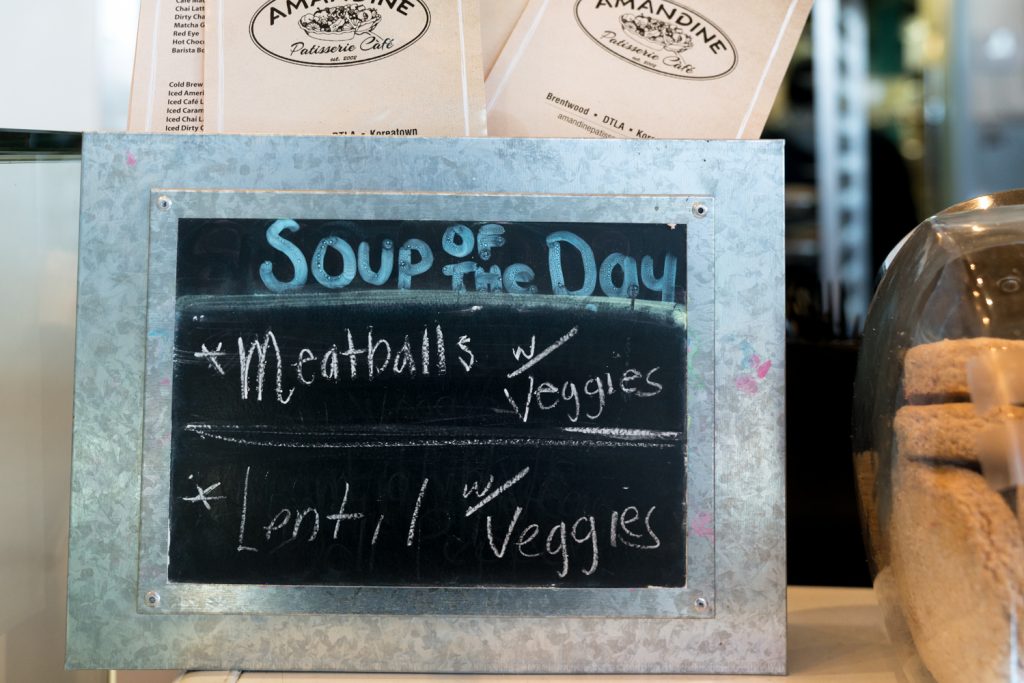 Chai Latt
Dirty Cha
Matcha G
Red Eye
Hot Choc
Barista Bo
Cold Brew
Iced Ameri
Iced Café L
Iced Caram
Iced Chai L
Iced Dirty C
AMANDINE
Patisserie Café
est. 2002
DTLA • Koreatown
AMANDINE
Patisserie Café
est. 2002
Brentwood • DTLA • Kore
amandinepatiss
SOUP OF THE DAY
* Meatballs w/ Veggies
* Lentil w/ Veggies